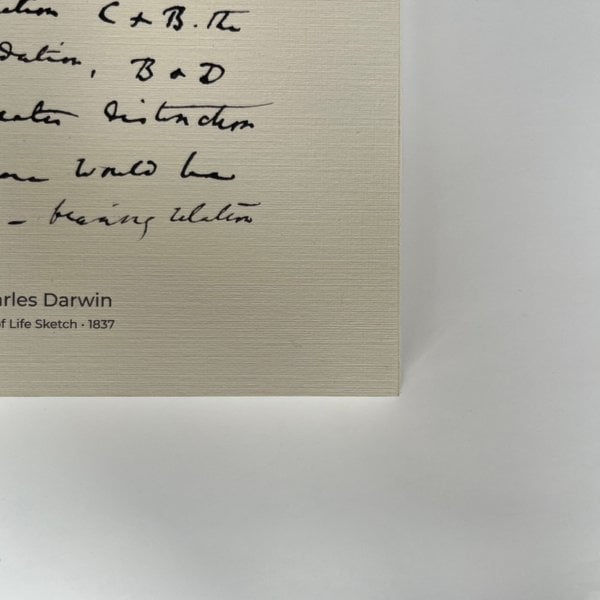 C + B. The
dation, B + D
distinction
would be
– bearing relation
arles Darwin
of Life Sketch · 1837